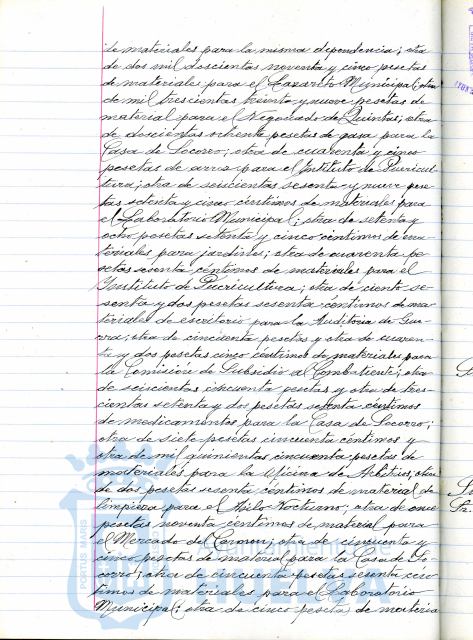 de materiales para la misma dependencia; otra
de dos mil doscientas noventa y cinco pesetas
de materiales para el Lazareto Municipal; otra
de mil trescientas treinta y nueve pesetas de
material para el Negociado de Quintas; otra
de doscientas ochenta pesetas de gasa para la
Casa de Socorro; otra de cuarenta y cinco
pesetas de arroz para el Instituto de Puericul-
tura; otra de seiscientas sesenta y nueve pese-
tas setenta y cinco céntimos de materiales para
el Laboratorio Municipal; otra de setenta y
ocho pesetas setenta y cinco céntimos de ma-
teriales para jardines; otra de cuarenta pe-
setas sesenta céntimos de materiales para el
Instituto de Puericultura; otra de ciento se-
senta y dos pesetas sesenta céntimos de ma-
teriales de escritorio para la Auditoria de Gue-
rra; otra de cincuenta pesetas y otra de cuaren-
ta y dos pesetas cinco céntimos de materiales para
la Comisión de Subsidio al Combatiente; otra
de seiscientas cincuenta pesetas y otra de tres-
cientas setenta y dos pesetas setenta céntimos
de medicamentos para la Casa de Socorro;
otra de siete pesetas cincuenta céntimos y
otra de mil quinientas cincuenta pesetas de
materiales para la Oficina de Arbitrios; otra
de dos pesetas sesenta céntimos de material de
limpieza para el Asilo Nocturno; otra de once
pesetas noventa céntimos de material para
el Mercado del Carmen; otra de cincuenta y
cinco pesetas de material para la Casa de So-
corro; otra de cincuenta pesetas sesenta cén-
timos de materiales para el Laboratorio
Municipal; otra de cinco pesetas de material
PORTUS MARIS